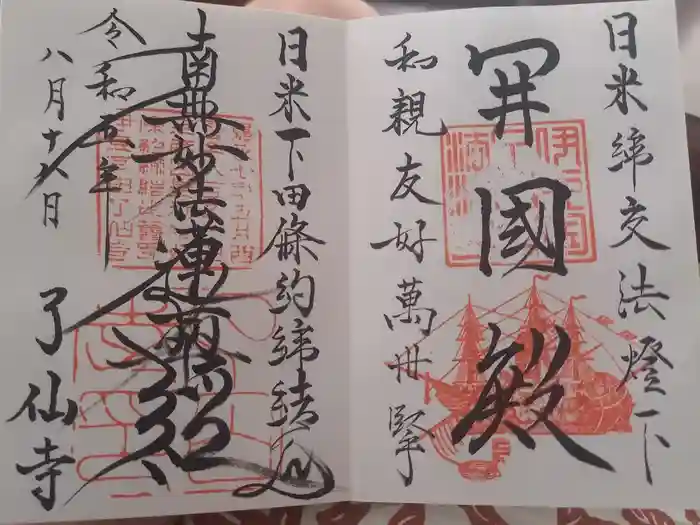 日米締交法燈下
開國殿
和親友好萬世堅
日米下田條約締結
南無妙法蓮華経
令和五年
八月十八日
了仙寺